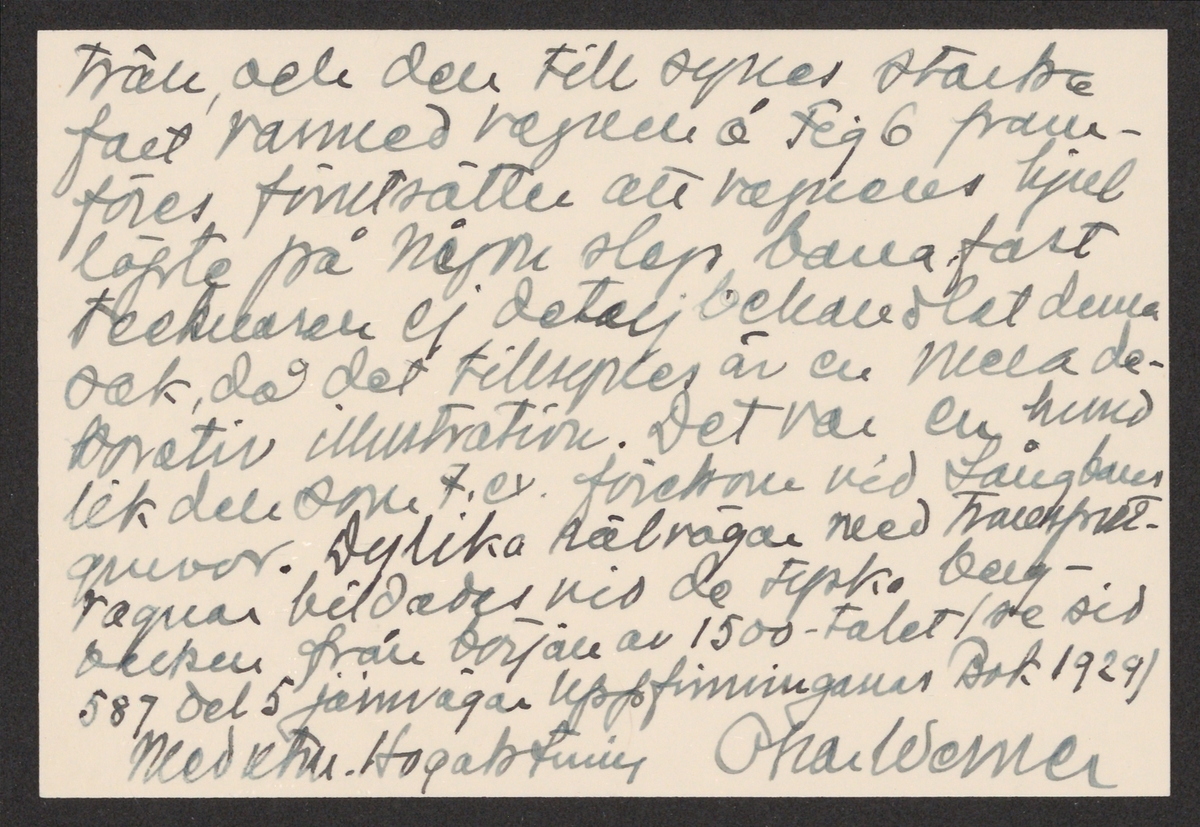 träh, och den till synes starka
fart varmed vagnen å Fig 6 fram-
föres, förutsätter att vagnens hjul
löpte på någon slags bana, fast
tecknaren ej detalj behandlat denna
sak, då det tillsynes är en mera de-
korativ illustration. Det var en hund
lik den som t.ex. förekom vid Långbans
gruvor. Dylika rälvägar med transport-
vagnar bildades vid de tyska berg-
verken från början av 1500-talet (se sid
587 del 5 järnvägar Uppfinningarnas Bok 1929)
Med utm. Högaktning Werner